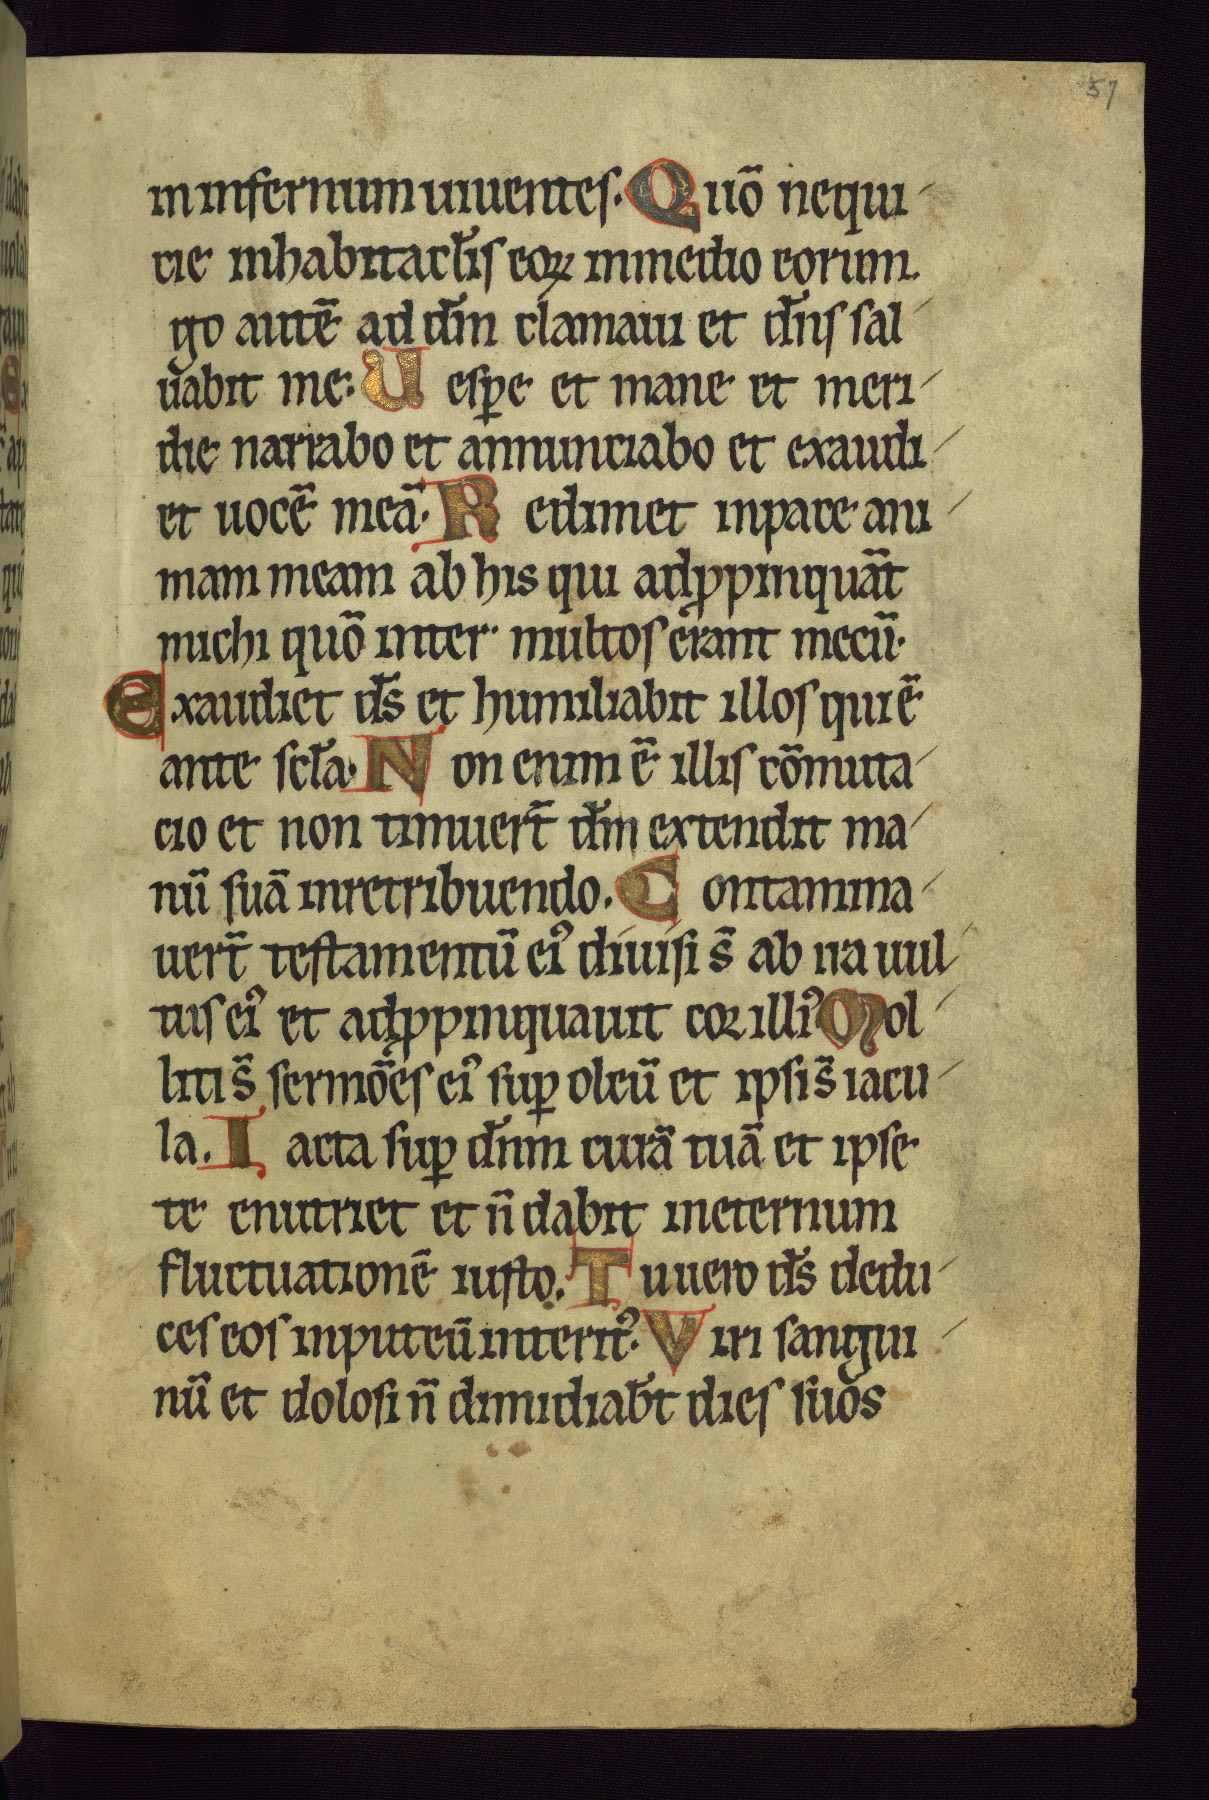 57
in infernum uiuentes. Quō nequi
cie inhabitaclis̄ eoꝝ in medio eorum.
go autē ad dm̄ clamaui et dn̄s sal
uabit me: Uesꝑe et mane et meri
die narrabo et annunciabo et exaudi
et uocē meā. Redimet in pace ani
mam meam ab his qui adꝓpinquāt
michi quō inter multos erant mecū.
Exaudiet ds̄ et humiliabit illos qui ē
ante scl̄a. Non enim ē illis cōmuta
cio et non timuert̄ dm̄ extendit ma
nū suā in retribuendo. Contamina
uert̄ testamentū eiꝰ diuisi s̄ ab ira uul
tus eiꝰ et adꝓpinquauit cor illiꝰ Mol
liti s̄ sermōes eiꝰ suꝑ oleū et ipsi s̄ iacu
la. Iacta suꝑ dn̄m curā tuā et ipse
te enutriet et n̄ dabit in eternum
fluctuationē iusto. Tu uero ds̄ dedu
ces eos in puteū interitꝰ. Viri sangui
nū et dolosi n̄ dimidiab̄t dies suos